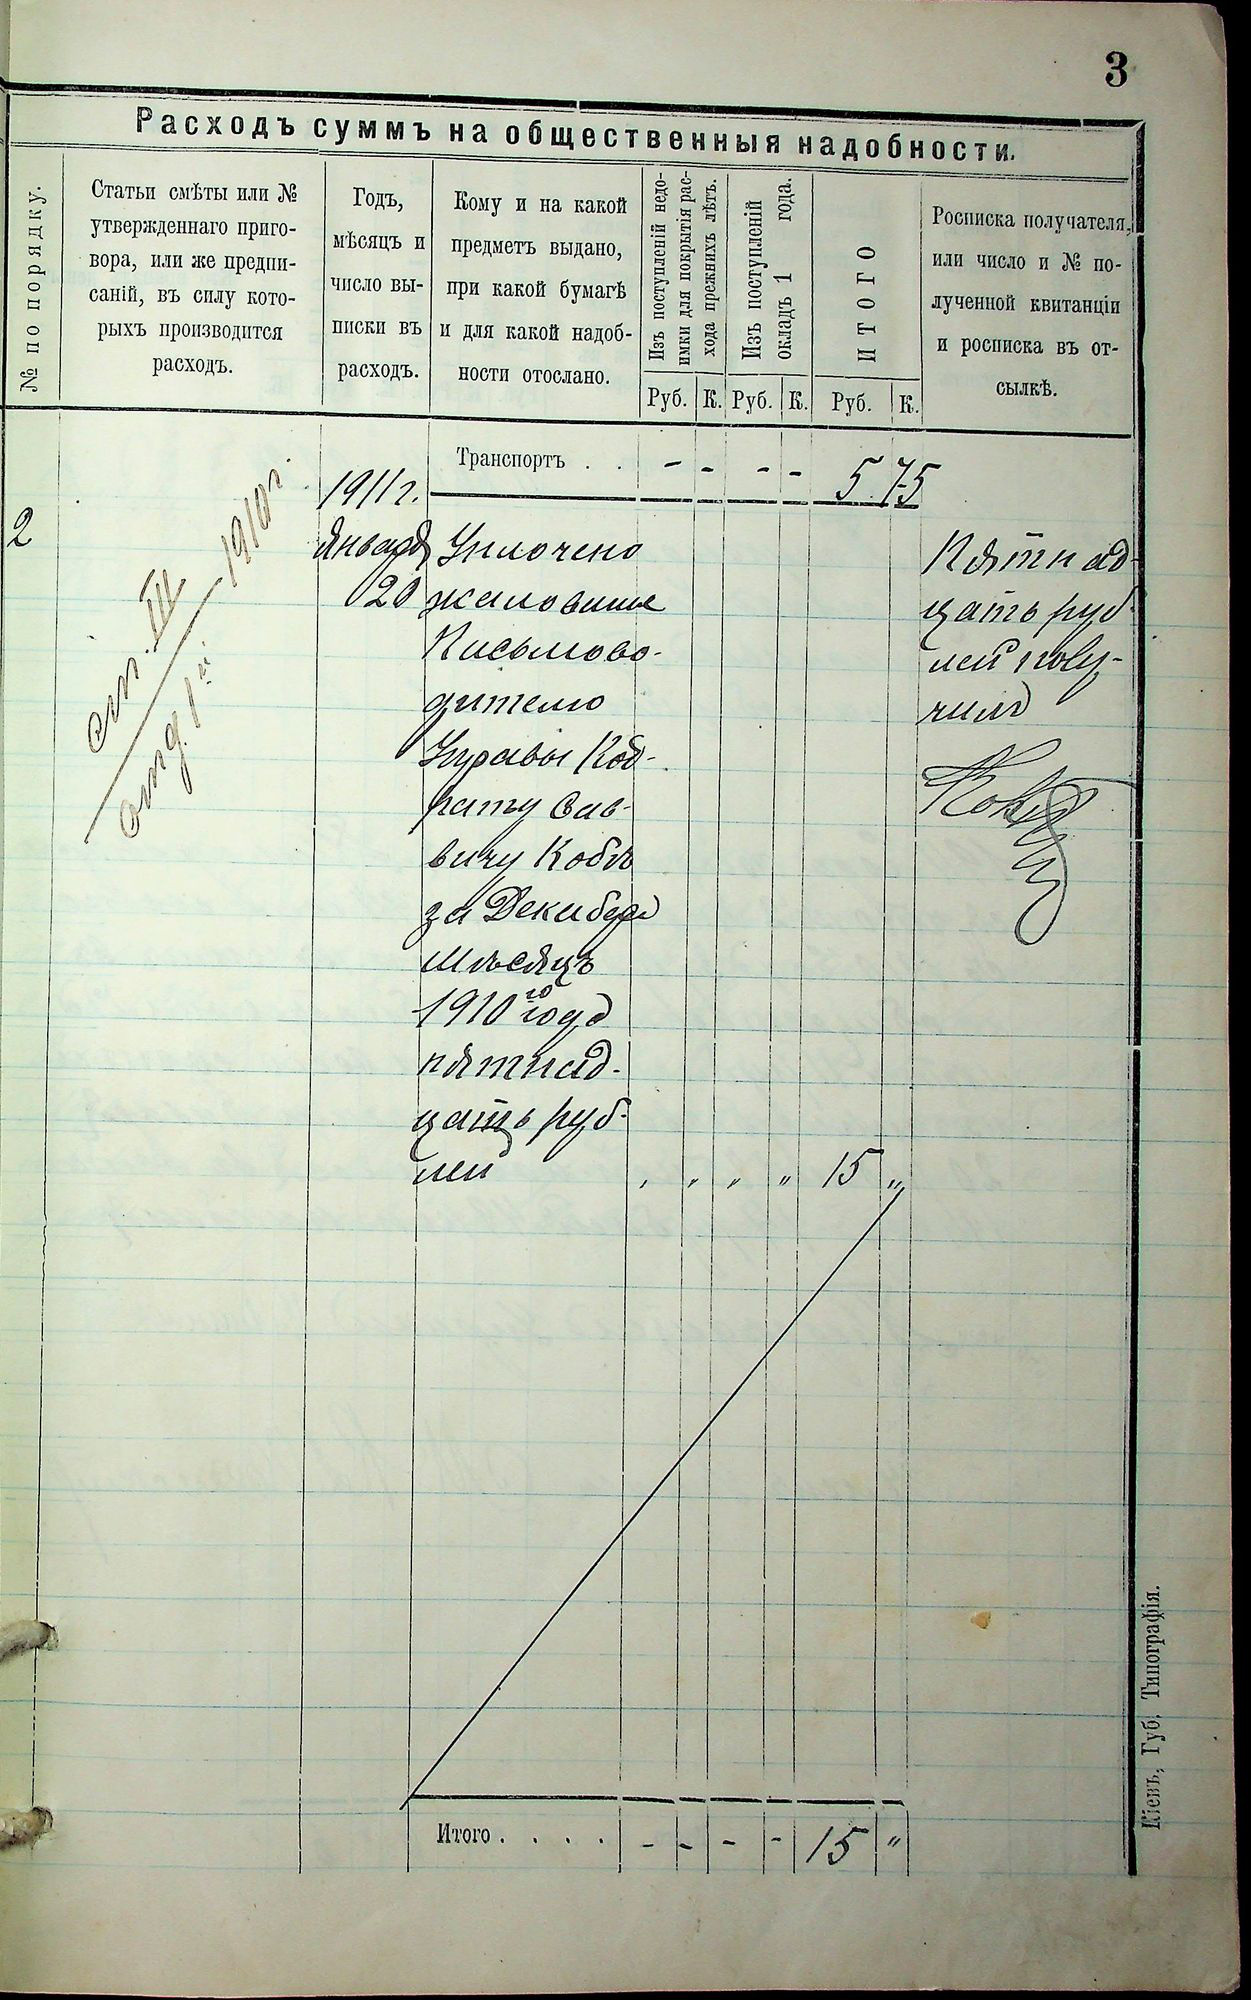 3
Расходъ суммъ на общественныя надобности.
№ по порядку.
Статьи смѣты или №
утвержденнаго приго-
вора, или же предпи-
саній, въ силу кото-
рыхъ производится
расходъ.
Годъ,
мѣсяцъ и
число вы-
писки въ
расходъ.
Кому и на какой
предметъ выдано,
при какой бумагѣ
и для какой надоб-
ности отослано.
Изъ поступленій недо-
имки для покрытія рас-
хода прежнихъ лѣтъ.
Руб. К.
Изъ поступленій
окладъ 1 года.
Руб. К.
ИТОГО
Руб. К.
Росписка получателя,
или число и № по-
лученной квитанціи
и росписка въ от-
сылкѣ.
Транспортъ . . - - - - 5 75
2
ст. III
отд. 1й
1910 г.
1911 г.
Января
20
Уплочено
жалованье
Письмово-
дителю
Управы Код-
рату Сав-
вичу
за Декабрь
мѣсяцъ
1910го года
пятнад-
цать руб-
лей " " " " 15 "
Пятнад-
цать руб-
лей полу-
чилъ
Итого . . . . - - - - 15 "
Кіевъ, Губ. Типографія.